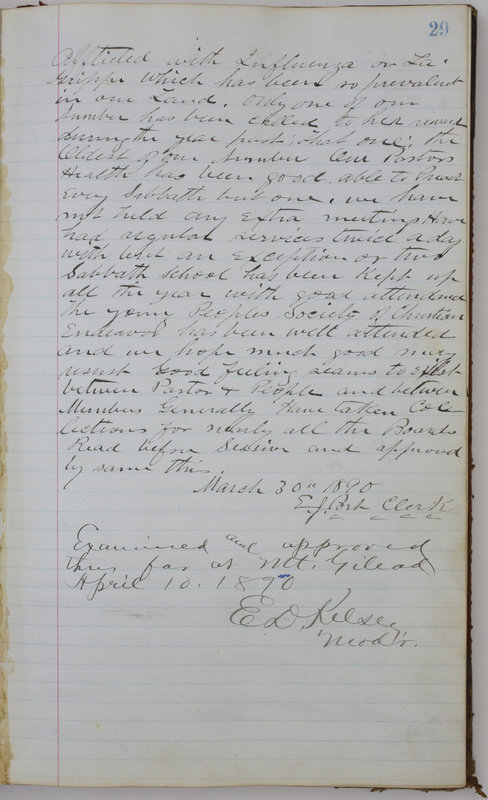 29
Afflicted with Influenza or La-
Grippe which has been so prevalent
in our Land. Only one of our
number has been called to her reward
during the year past that one, the
Oldest of our Number Our Pastors
Health has been good able to Preach
Every Sabbath but one. we have
not held any Extra meetings Have
had regular services twice a day
with but an Exception or two
Sabbath School has been Kept up
all the year with good attendance
the young Peoples Society of Christian
Endeavor has been well attended
and we hope much good may
result Good feeling seams to Exist
between Pastor & People and between
Members Generally Have taken Col
lections for nearly all the Boards
Read before Session and approved
by same this
March 30" 1890
E. J. Clerk
Examined and approved
thus far at Mt. Gilead
April 10. 1890
E D Kelsey
Mod'r.